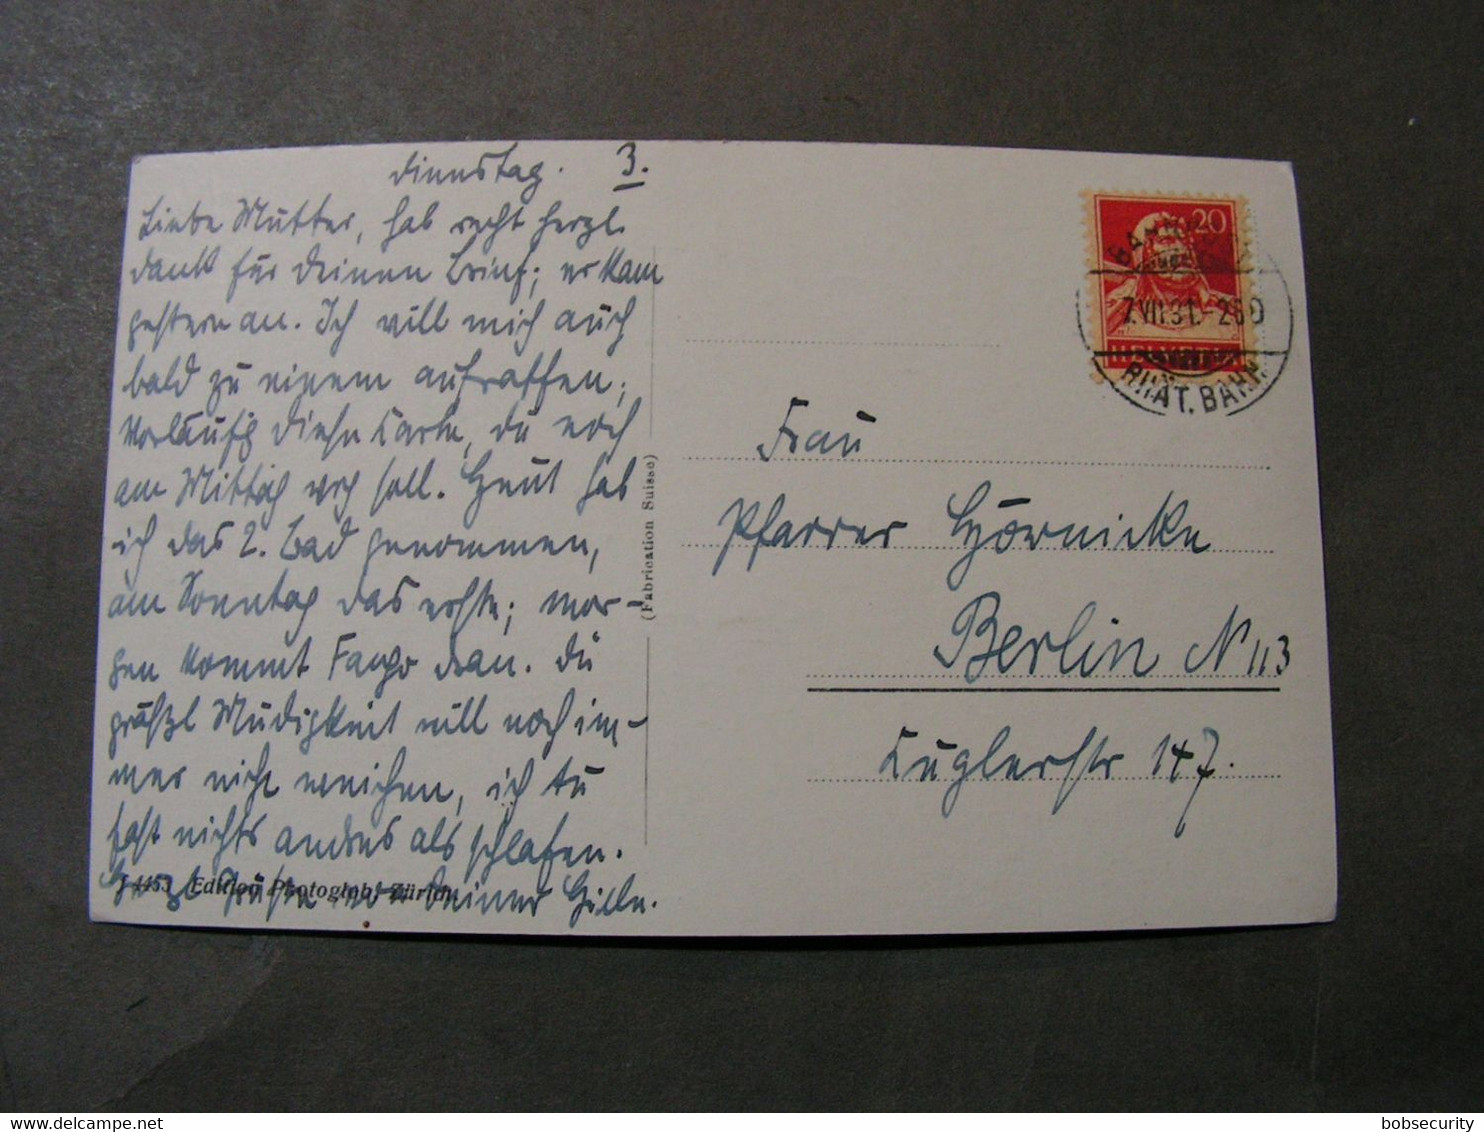 Dienstag. 3.
Liebe Mutter, hab recht herzl.
Dank für Deinen Brief; er kam
gestern an. Ich will mich auch
bald zu einem aufraffen;
vorläufig diese Karte, die noch
am Mittag weg soll. Heut hab
ich das 2. Bad genommen,
am Sonntag das erste; mor-
gen kommt Fango dran. Die
gräßl. Müdigkeit will noch im-
mer nicht weichen, ich tu
fast nichts andres als schlafen.
Herzl. Grüße von Deiner
J 4453 Edition Photoglob, Zürich
(Fabrication Suisse)
20
HELVETIA
BAHN
7.VII.31.-260
RHÄT. BAHN
Frau
Pfarrer Hörnicke
Berlin N 113
Kuglerstr 147.
bobsecurity